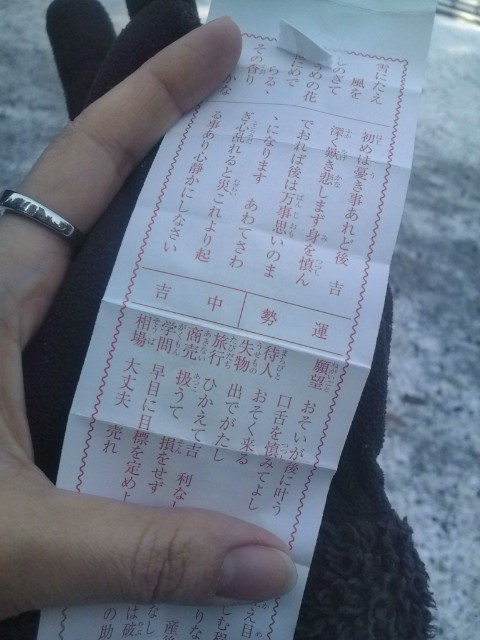 雪にたえ
風を
しのぎて
うめの花
にめで
らるゝ
その香り
かな
初めは憂き事あれど後 吉
深く歎き悲します身を慎ん
でおれば後は万事思いのま
ゝになります あわてさわ
ぎ心乱れると災これより起
る事あり心静かにしなさい
運勢
中吉
願望 おそいが後に叶う
口舌を慎みてよし
待人 おそく来る
失物 出でがたし
旅行 ひかえて吉 利なし
商売 扱うて 損をせず
学問 早目に目標を定めよ
相場 大丈夫 売れ